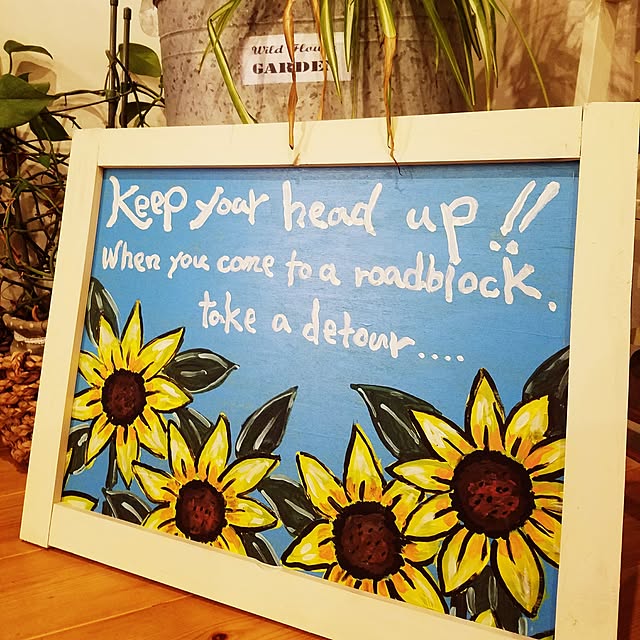 Wild Flower
GARDEN
Keep your head up!!
When you come to a roadblock.
take a detour....